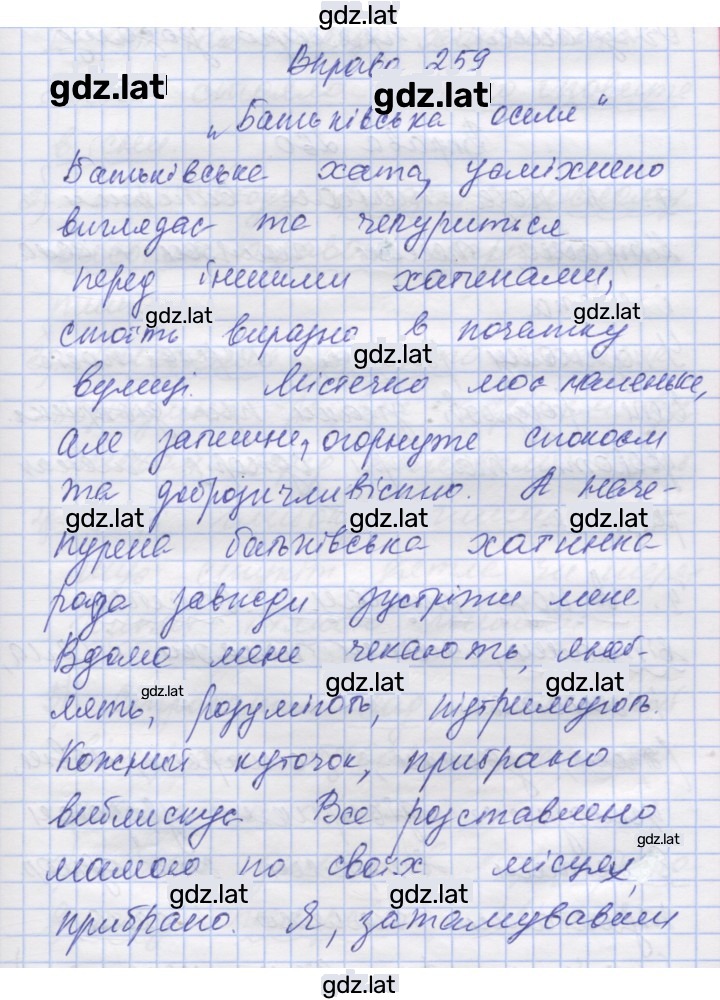 gdz.lat
Вправа 259
gdz.lat gdz.lat
„Батьківська оселя“
Батьківська хата, усміхнено
виглядає та чепуриться
перед іншими хатинами,
gdz.lat gdz.lat
стоїть виразно в початку
gdz.lat
вулиці. Містечко моє маленьке,
але затишне, огорнуте спокоєм
та доброзичливістю. А наче-
gdz.lat gdz.lat gdz.lat
пурена батьківська хатинка
рада завжди зустріти мене
Вдома мене чекають, люб-
gdz.lat gdz.lat gdz.lat
лять, розуміють, підтримують.
Кожний куточок, прибрано
виблискує. Все розставлено
gdz.lat
мамою по своїх місцях,
gdz.lat gdz.lat
прибрано. Я, затамувавши
gdz.lat